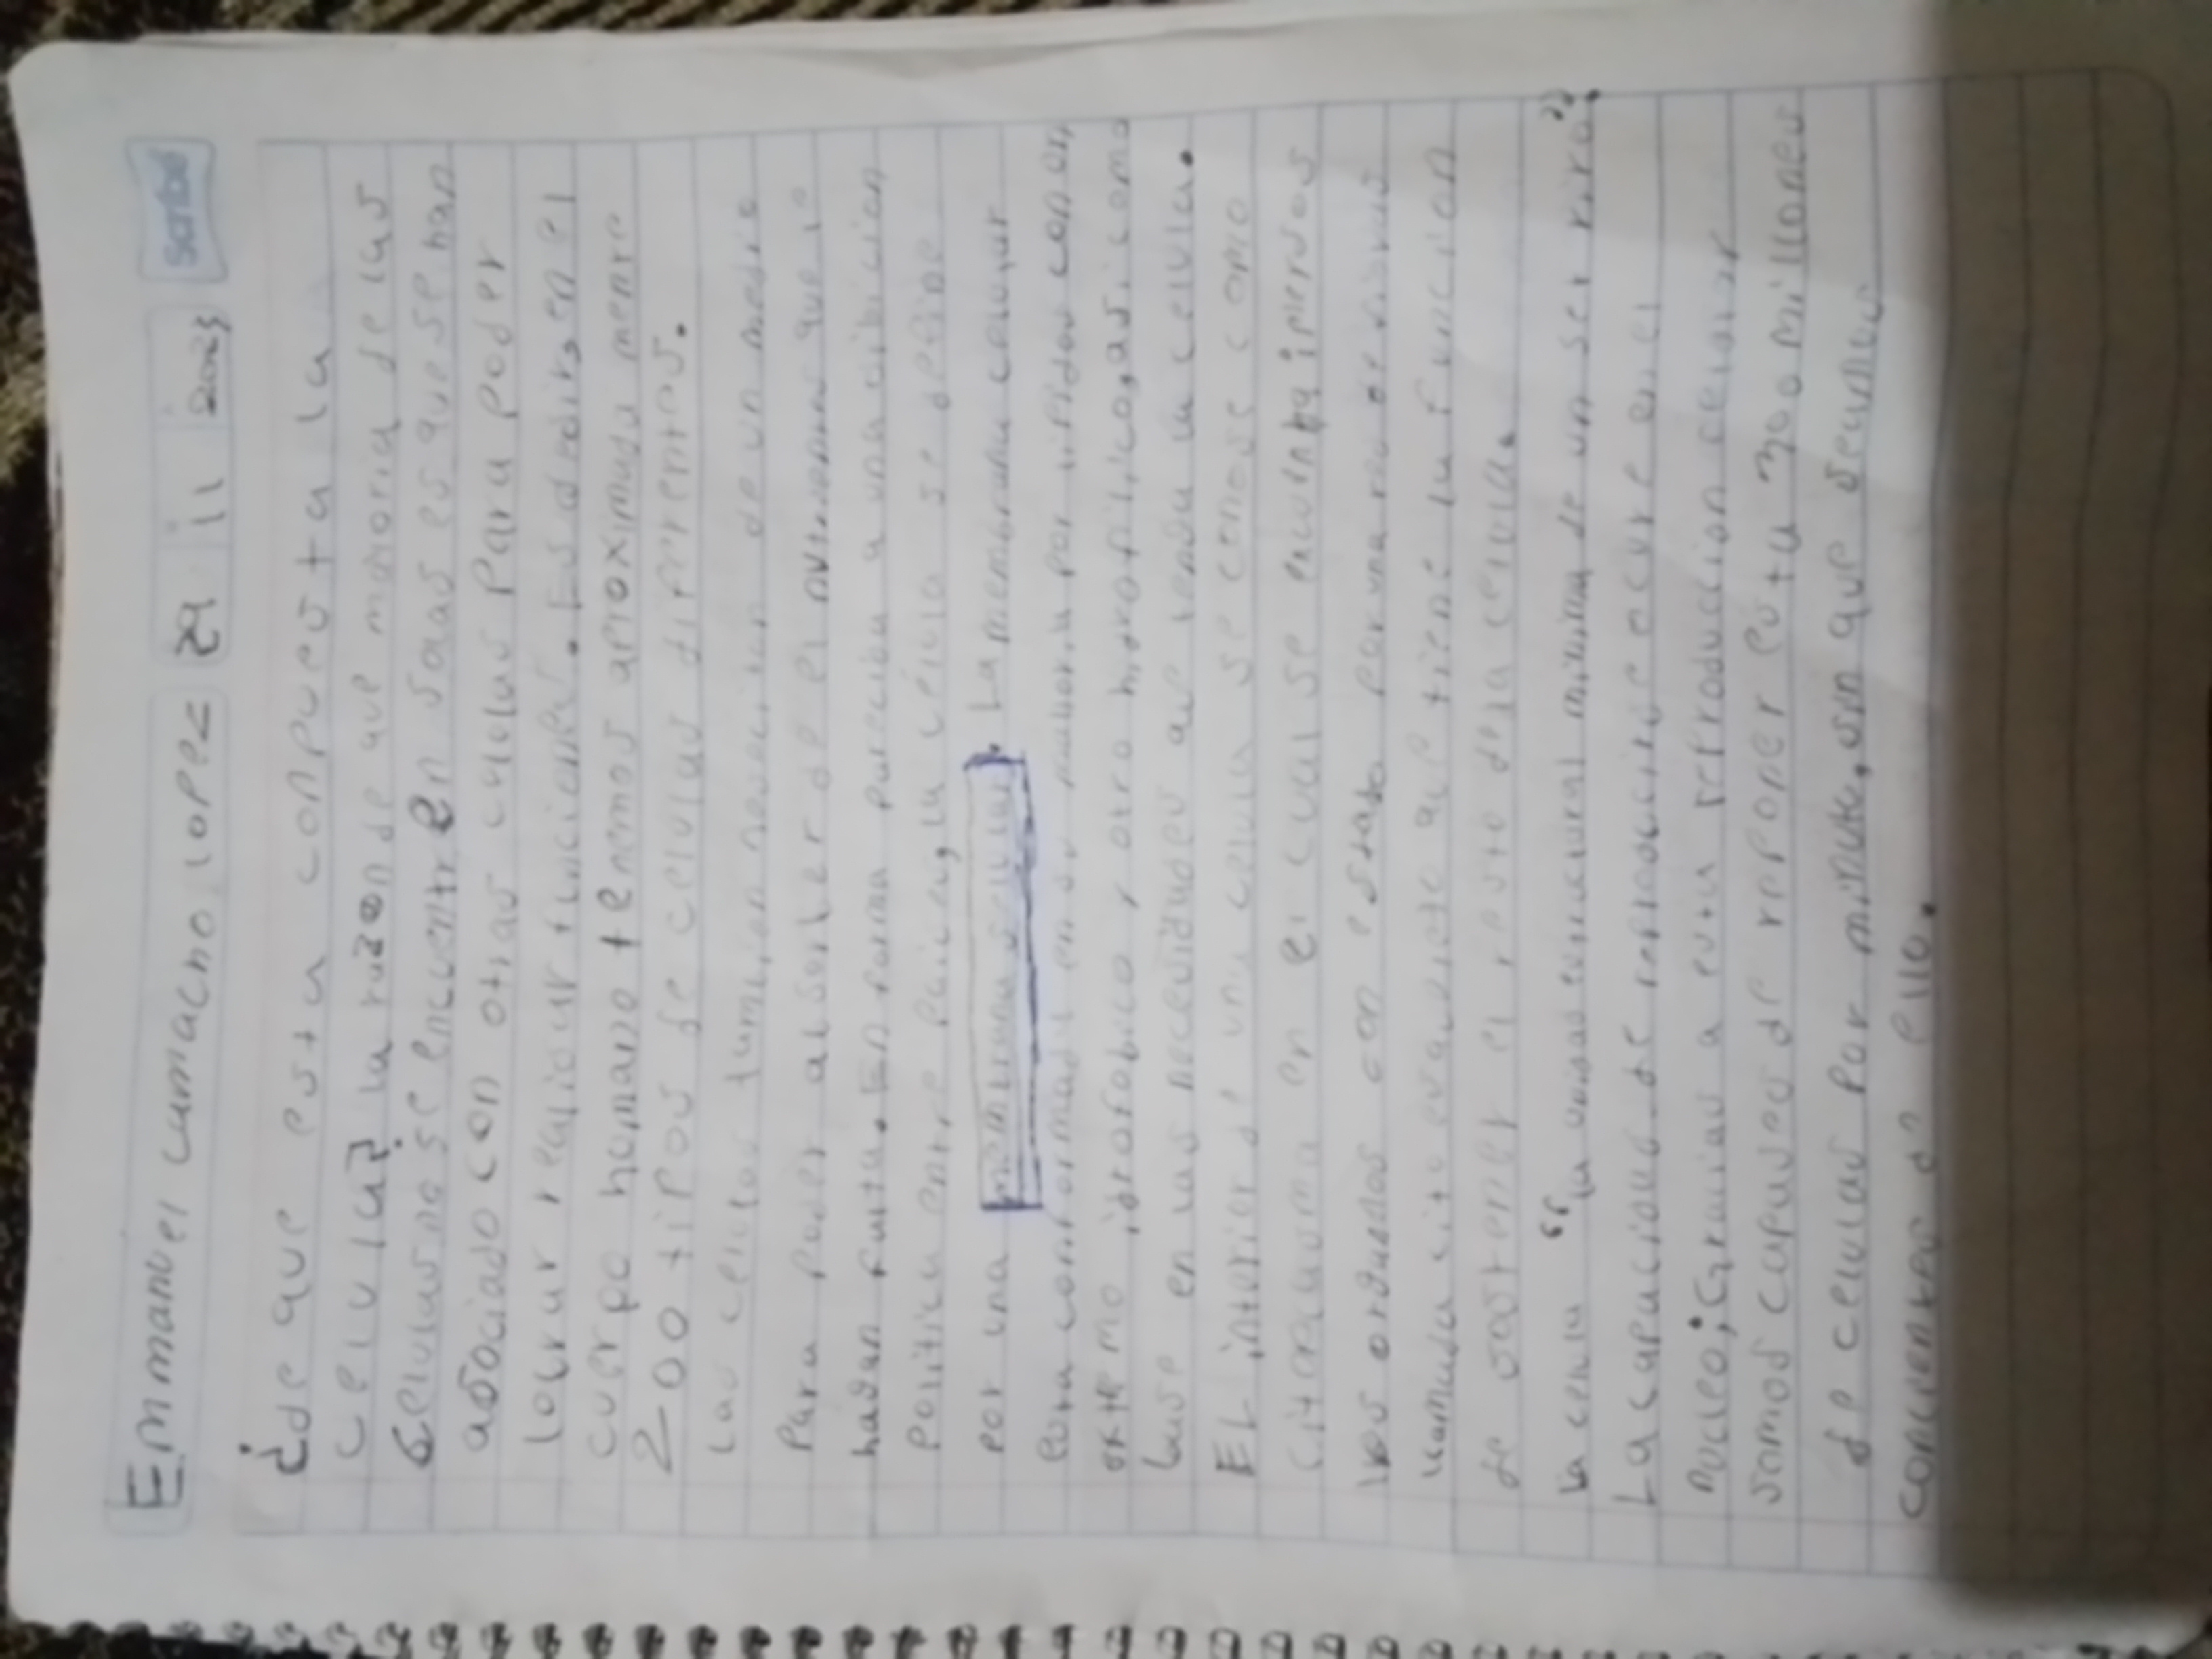 Emmanuel camacho lopez 29 11 2023
¿de que esta conpuesta la
celula? la razon de que moioria de las
celulas no se encuentren soaas es que se han
asociado con otras celulas para poder
realicar funciones. Es desir, en el
cuerpo humano tenemos aproximada mente
200 tipos de celulas diferentes.
Las celulas tambien nesecitan de un medio
Para poder absorber de el nutrientes que le
hagan falta. En forma parecida a una
Politica entre paices, la celula se define
por una membrana celular. La membrana celular
esta conformada en su mayoria por lipidos con un
extremo idrofobico y otro hidrofilico, asi como
base en las necesidades que tenga la celula.
EL interior de una celula se conose como
citoplasma en el cual se encuentra inmersos
los organelos
llamada citoesqueleto que tiene la funcion
de sostener el resto de la celula.
la celula "la unidad estructural minima de un ser vivo".
La capacidad de reproducirse ocurre en el
nucleo; Gracias a esta reproduccion celular
somos capases de reponer esta 300 millones
de celulas por minuto, sin que seamos
concientes de ello.